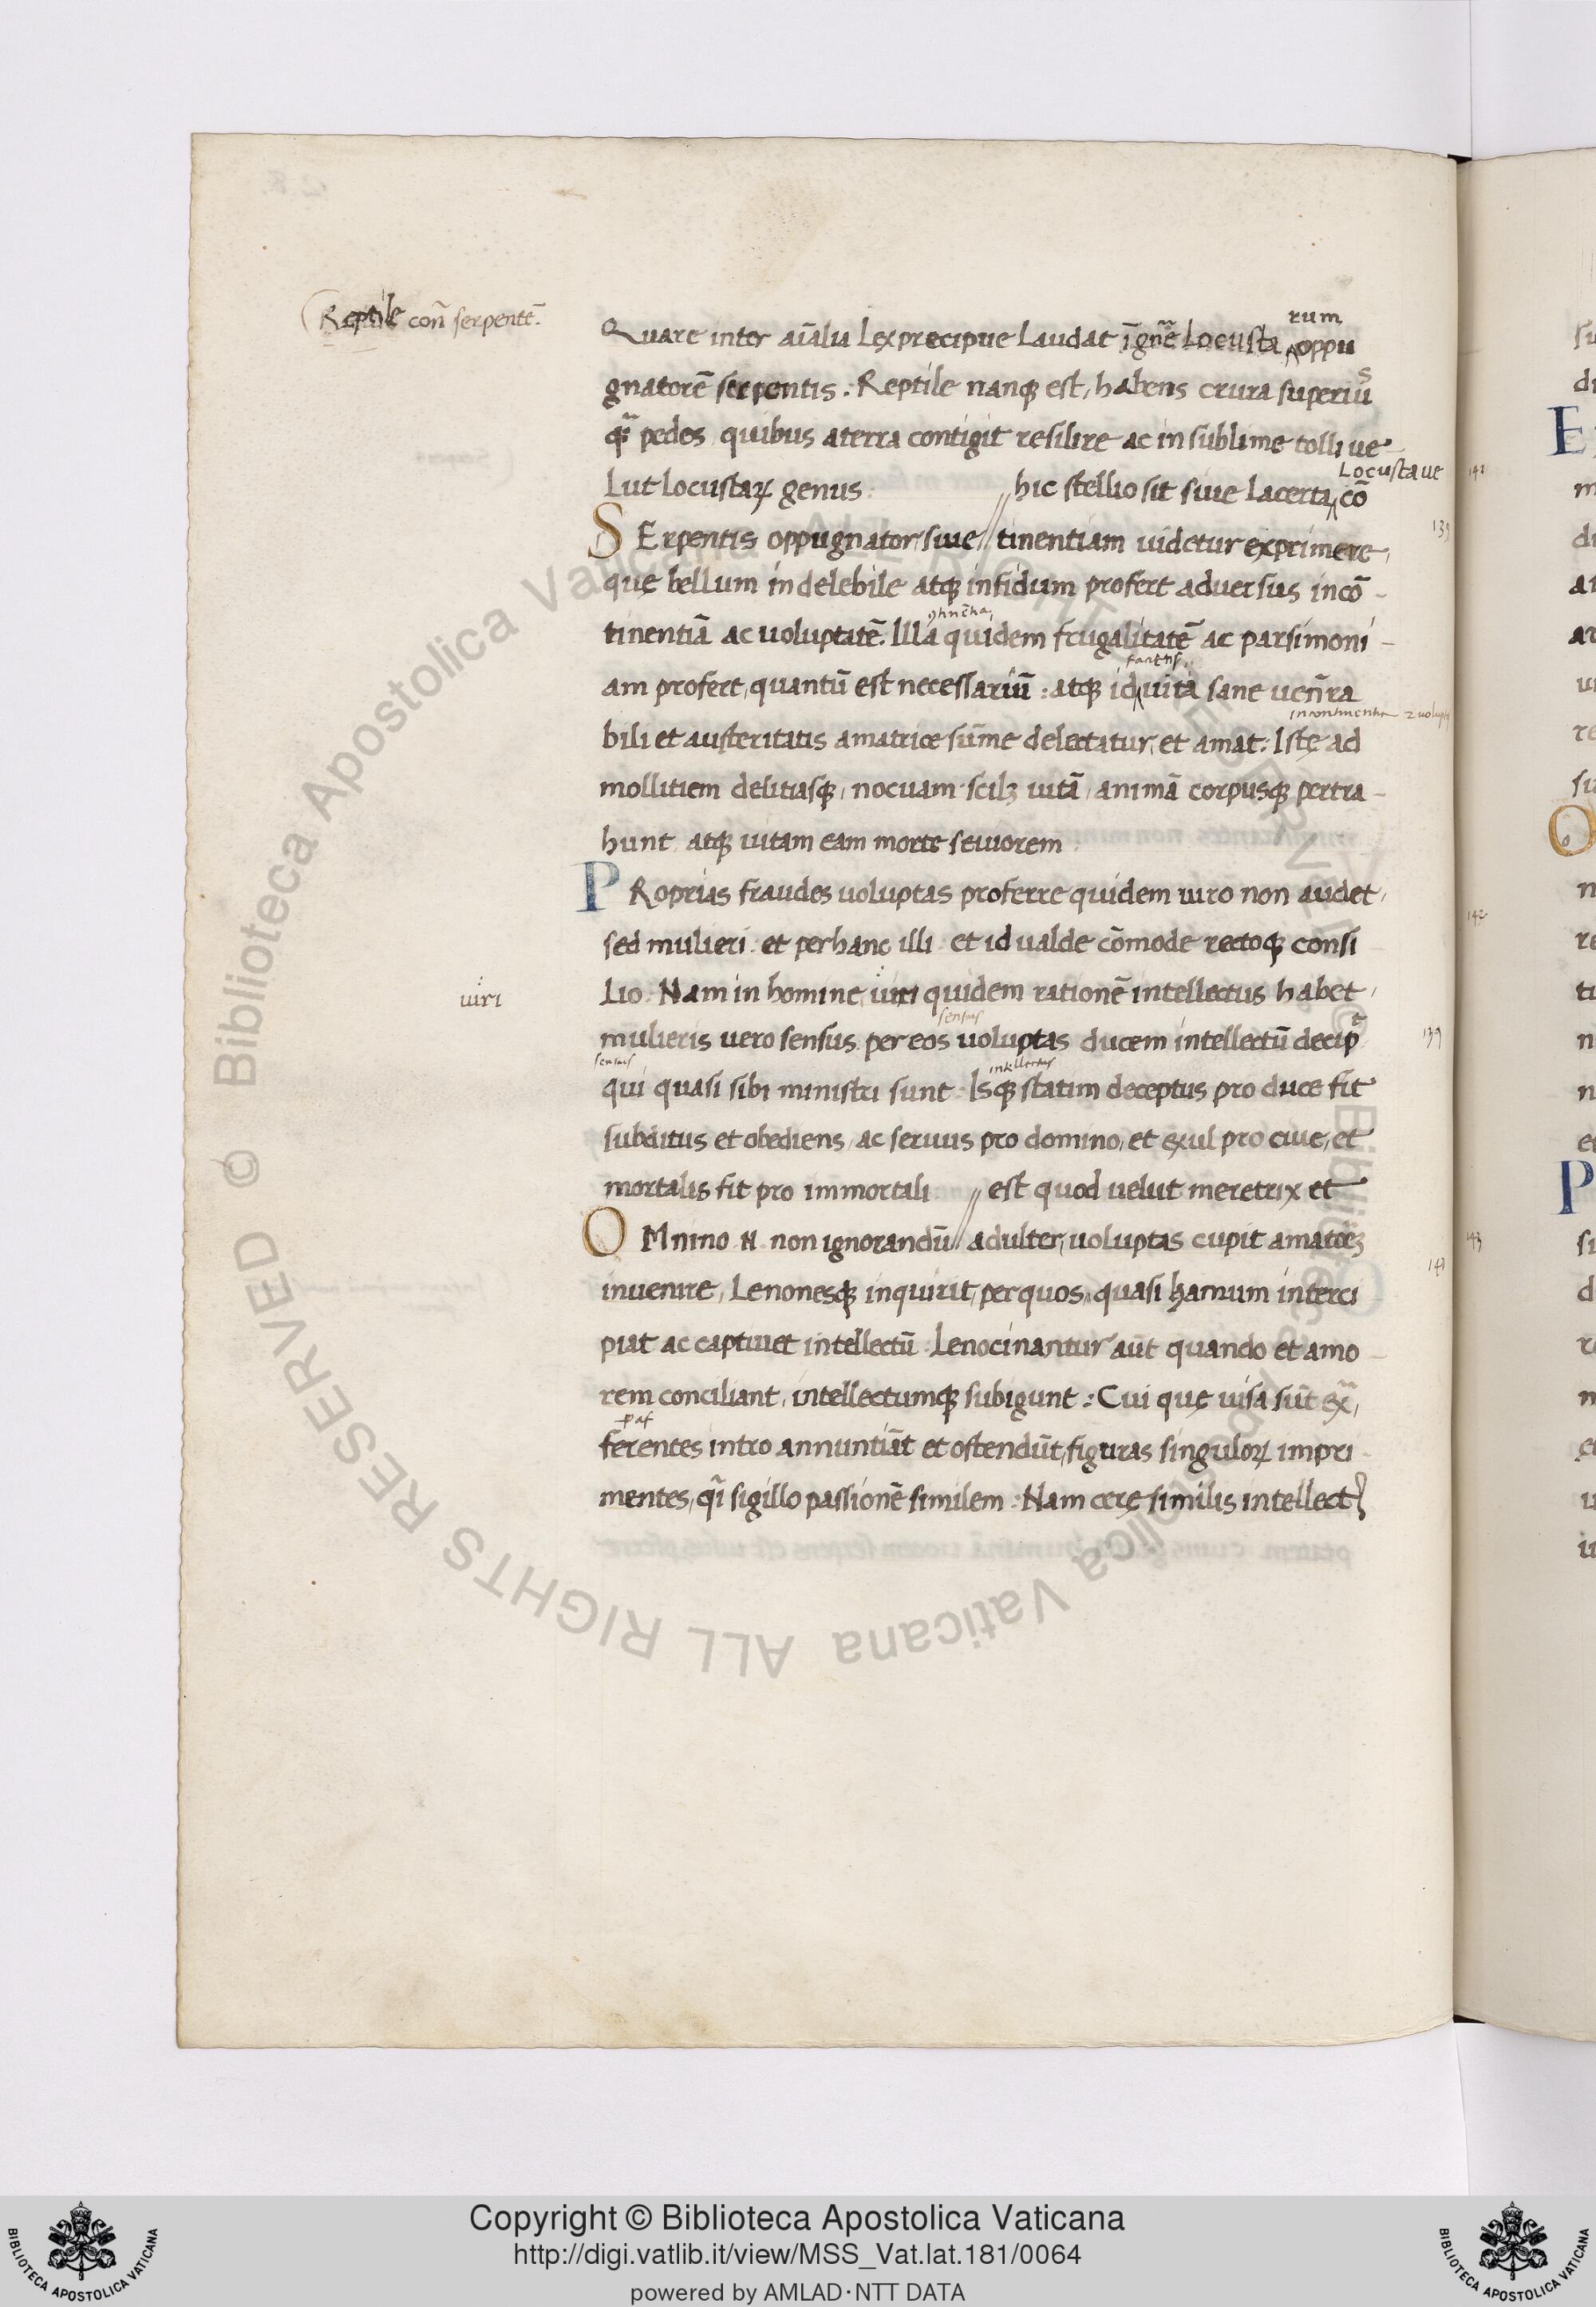 Reptile con̄ serpentē.
Quare inter aīalia Lex precipue Laudat ī gn̄e Locustarum oppu
gnatorē serpentis. Reptile nanq; est, habens crura superius
q̄ pedes quibus aterra contigit resilire ac in sublime tolli ue-
Lut locustaꝝ genus. // hic stellio sit siue lacerta Locustaue cō
SErpentis oppugnator, siue // tinentiam uidetur exprimere,
quę bellum indelebile atq; infidum profert aduersus incō-
tinentiā ac uoluptatē. Illa quidem frugalitatē ac parsimoni-
am profert, quantū est necessariū: atq; id uita sane uen̄ra
incontinentia
bili et austeritatis amatrice sūme delectatur, et amat: Istę ad
mollitiem delitiasq;, nocuam scilꝫ uitā, animā corpusq; pertra-
hunt, atq; uitam eam morte seuiorem
PRoprias fraudes uoluptas proferre quidem uiro non audet,
sed mulieri. et per hanc illi. et id ualde cōmode rectoq; consi
uiri
Lio. Nam in homine, uiri quidem rationē intellectus habet,
sensus
mulieris uero sensus. per eos uoluptas ducem intellectū decipt
sensus
intellectus
qui quasi sibi ministri sunt. Isq; statim deceptus pro duce fit
subditus et obediens, ac seruus pro domino, et exul pro ciue, et
mortalis fit pro immortali // est quod uelut meretrix et
OMnino .N. non ignorandū // adulter, uoluptas cupit amatoreꝫ
inuenire, Lenonesq; inquirit, per quos, quasi hamum interci
piat ac captiuet intellectū. Lenocinantur aūt quando et amo
rem conciliant, intellectumq; subigunt: Cui quę uisa sūt ex̄,
ferentes intro annuntiāt et ostendūt, figuras singuloꝝ impri
mentes, q̄i sigillo passionē similem: Nam cerę similis intellectꝰ
139
139
141
142
142
143
© Biblioteca Apostolica Vaticana ALL RIGHTS RESERVED © Biblioteca Apostolica Vaticana ALL RIGHTS RESERVED
Copyright © Biblioteca Apostolica Vaticana
http://digi.vatlib.it/view/MSS_Vat.lat.181/0064
powered by AMLAD·NTT DATA
BIBLIOTECA APOSTOLICA VATICANA
BIBLIOTECA APOSTOLICA VATICANA